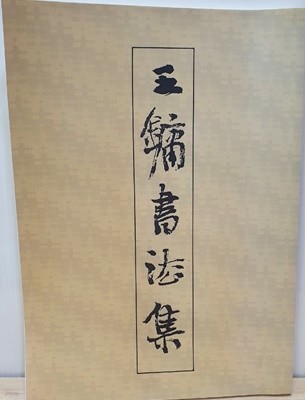 王鏞書法集